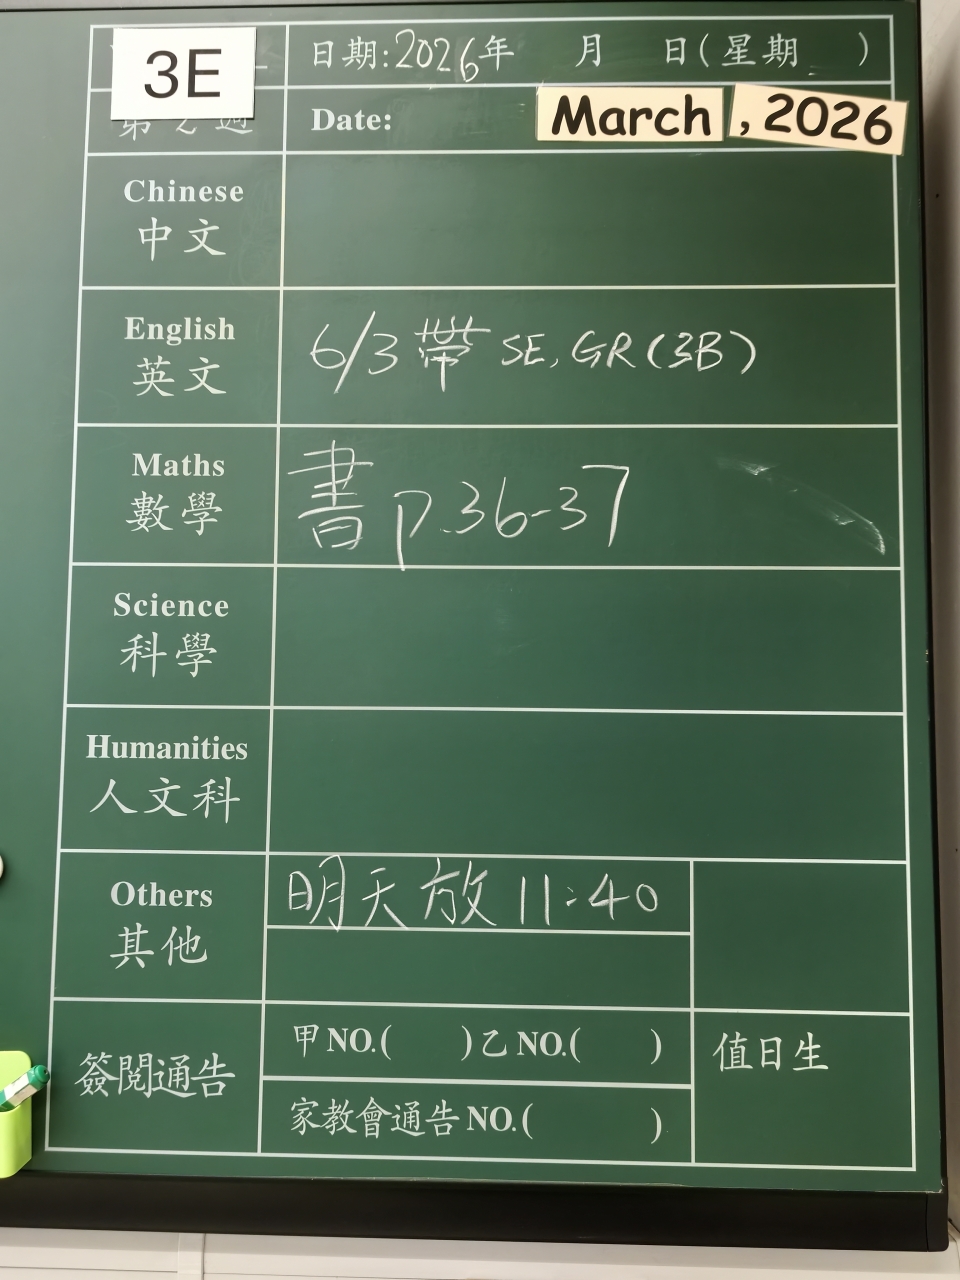 3E
日期:2026年 月 日(星期 )
第 2 週
Date: March , 2026
Chinese
中文
English
英文
6/3 帶 SE, GR (3B)
Maths
數學
書 p.36-37
Science
科學
Humanities
人文科
Others
其他
明天放 11:40
簽閱通告
甲 NO.( ) 乙 NO.( )
家教會通告 NO.( )
值日生